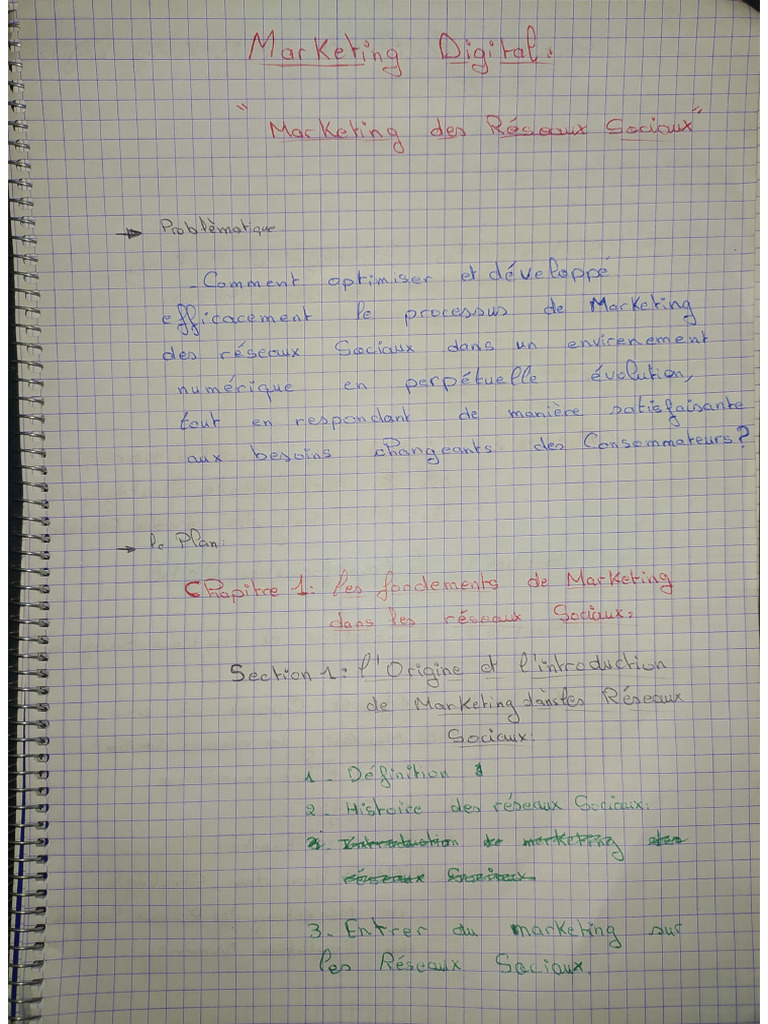 Marketing Digital:
"Marketing des Réseaux Sociaux"
→ Problèmatique
- Comment optimiser et développé
efficacement le processus de Marketing
des réseaux Sociaux dans un envirenement
numérique en perpétuelle évolution,
tout en respondant de manière satisfaisante
aux besoins changeants des Consommateurs?
→ le Plan:
Chapitre 1: les fondements de Marketing
dans les réseaux Sociaux:
Section 1: l'Origine et l'introduction
de Marketing dans les Réseaux
Sociaux:
1 - Définition
2 - Histoire des réseaux Sociaux.
Introduction de marketing des
réseaux Sociaux.
3 - Entrer du marketing sur
les Réseaux Sociaux.